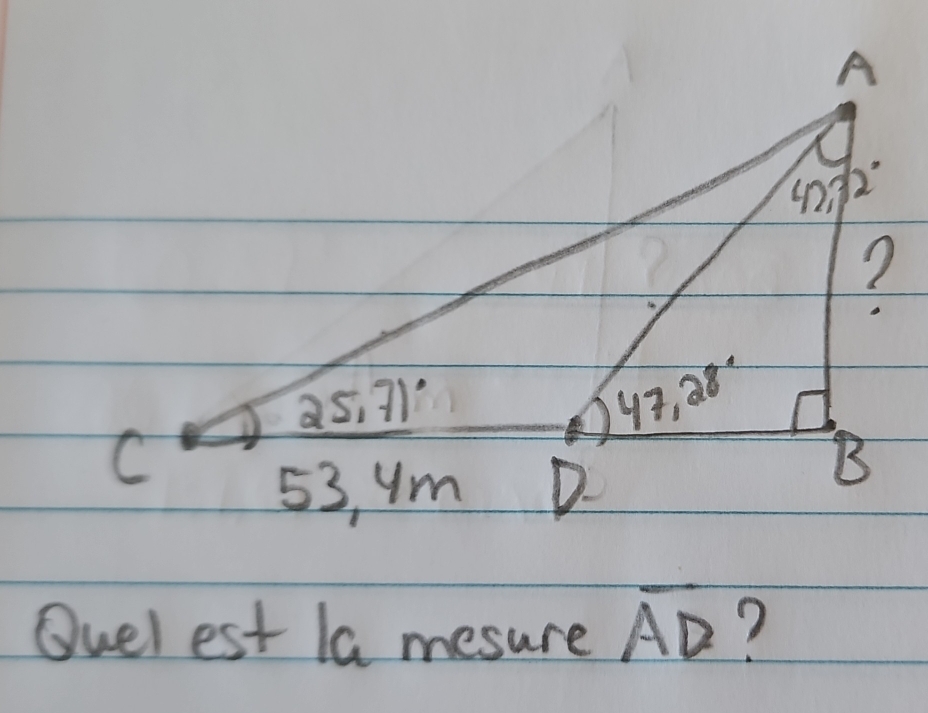 A
42,72°
?
25,71°
47,28°
C
D
B
53,4m
Quel est la mesure AD?